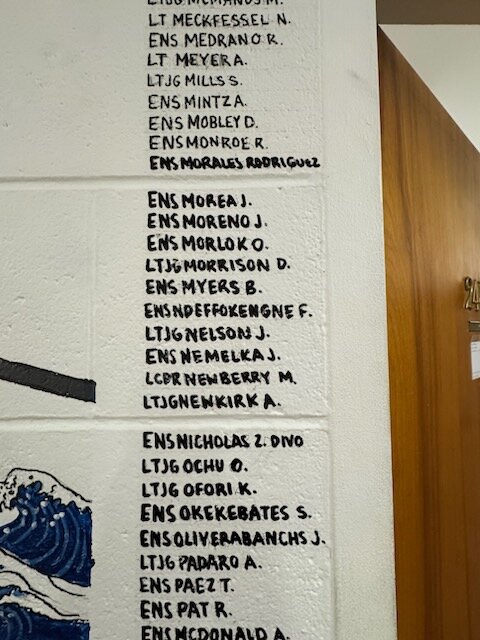 LTJG MCMANUS M.
LT MECKFESSEL N.
ENS MEDRANO R.
LT MEYER A.
LTJG MILLS S.
ENS MINTZ A.
ENS MOBLEY D.
ENS MONROE R.
ENS MORALES RODRIGUEZ
ENS MOREA J.
ENS MORENO J.
ENS MORLOK O.
LTJG MORRISON D.
ENS MYERS B.
ENS NDEFFOKENGNE F.
LTJG NELSON J.
ENS NEMELKA J.
LCDR NEWBERRY M.
LTJG NEWKIRK A.
ENS NICHOLAS Z. DIVO
LTJG OCHU O.
LTJG OFORI K.
ENS OKEKEBATES S.
ENS OLIVERABANCHS J.
LTJG PADARO A.
ENS PAEZ T.
ENS PAT R.
ENS MCDONALD A.